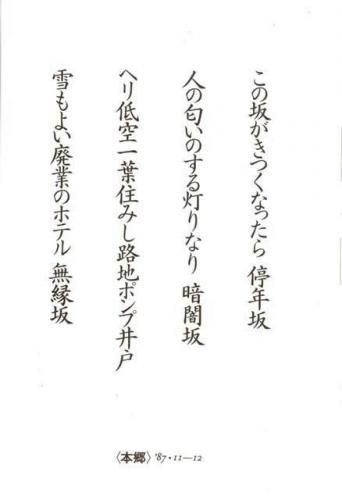 この坂がきつくなったら 停年坂
人の匂いのする灯りなり 暗闇坂
ヘリ低空一葉住みし路地ポンプ井戸
雪もよい廃業のホテル 無縁坂
〈本郷〉'87・11—12